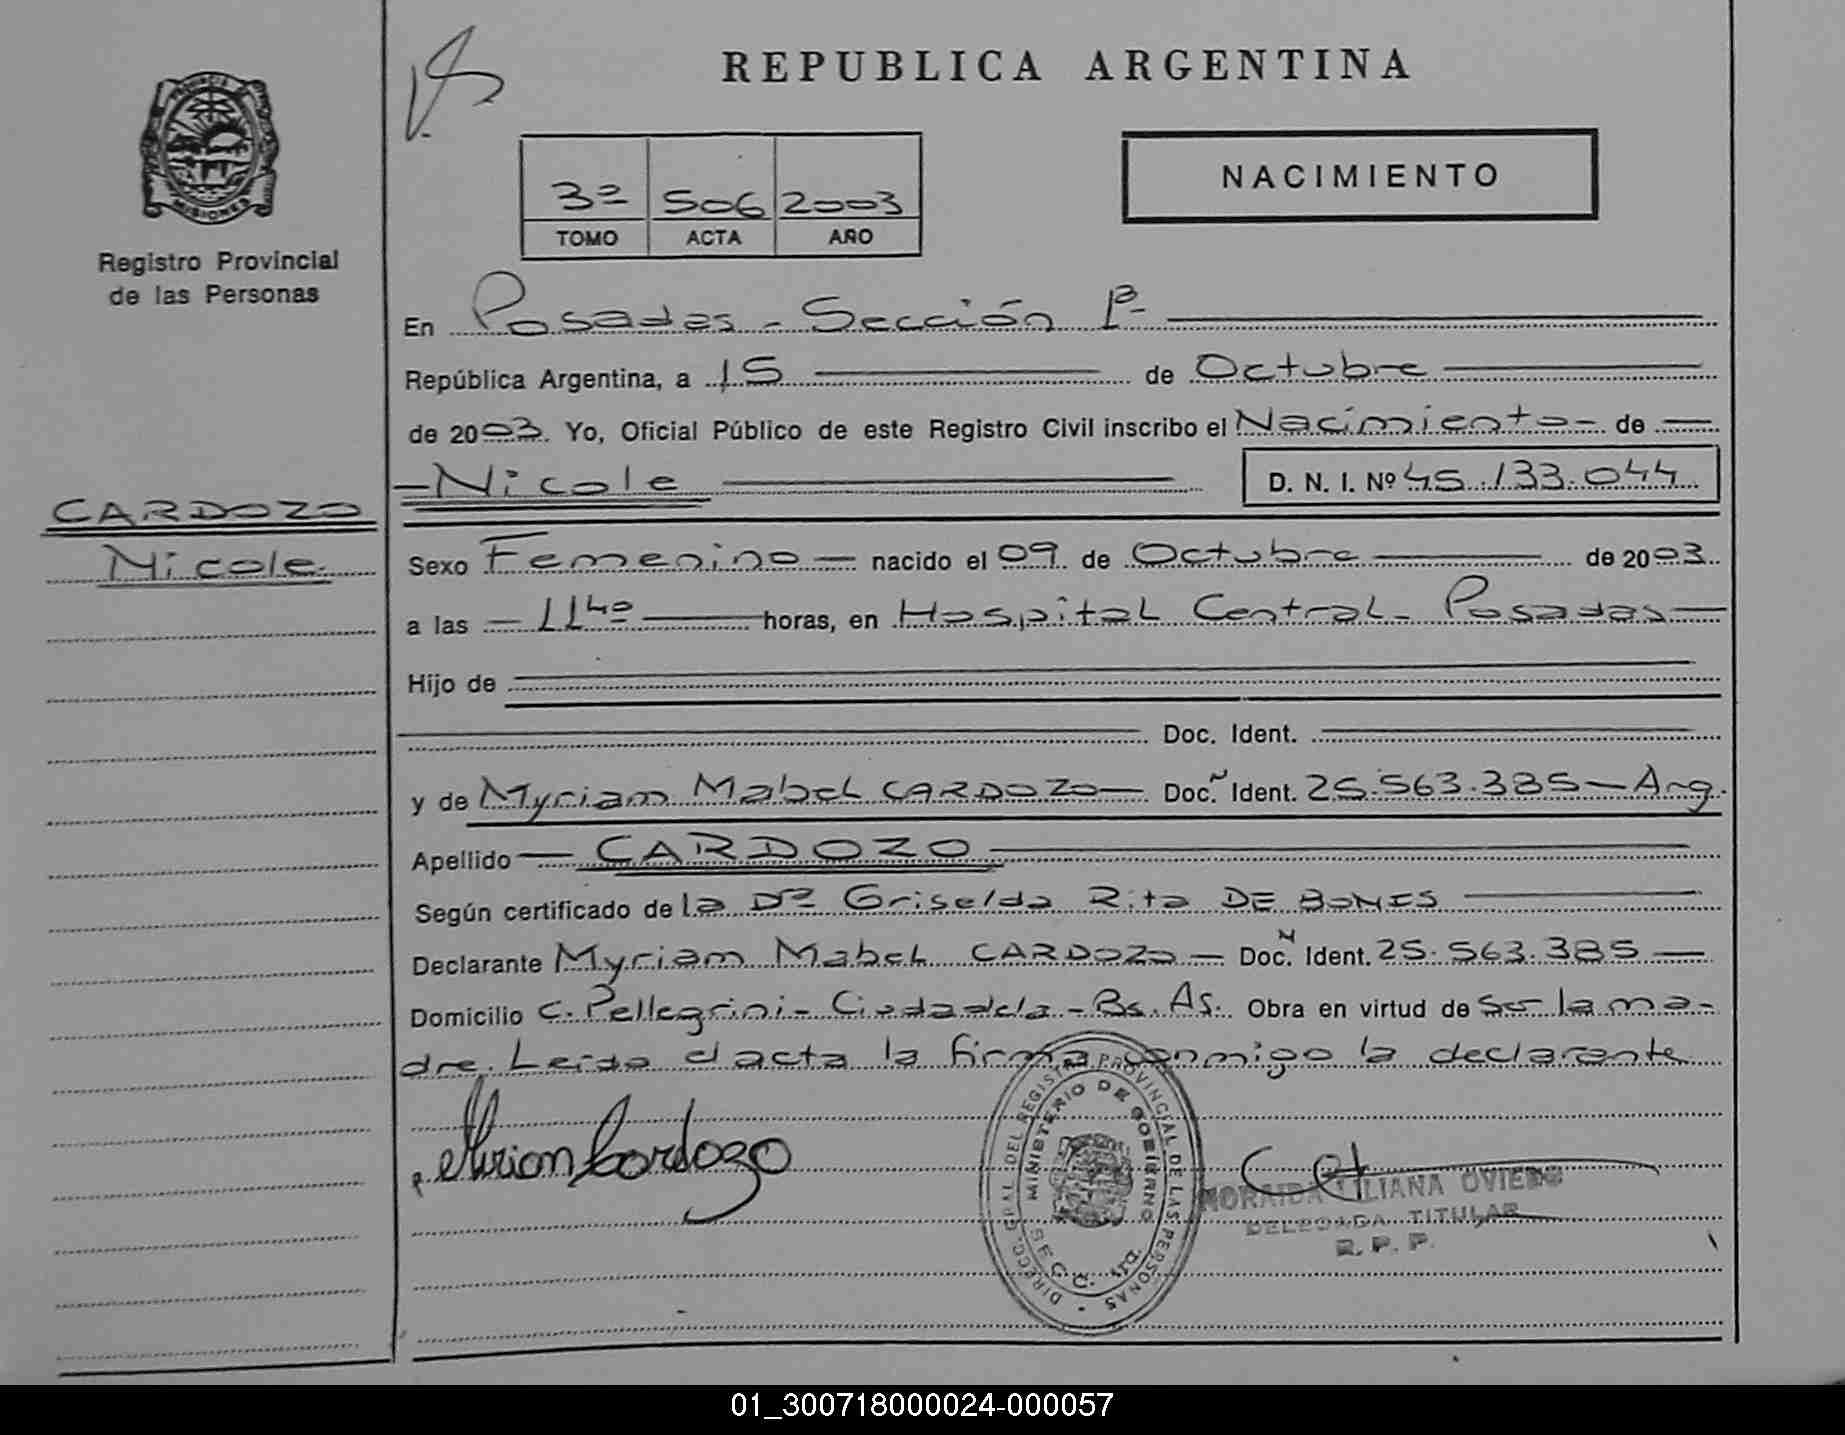 REPUBLICA ARGENTINA
PROVINCIA DE
MISIONES
Registro Provincial
de las Personas
3º 506 2003
TOMO ACTA AÑO
NACIMIENTO
En Posadas - Sección 1ª
República Argentina, a 15 de Octubre
de 2003. Yo, Oficial Público de este Registro Civil inscribo el Nacimiento de
Nicole D. N. I. Nº 45.133.044
CARDOZO
Nicole
Sexo Femenino nacido el 09 de Octubre de 2003
a las 11 40 horas, en Hospital Central - Posadas
Hijo de
Doc. Ident.
y de Myriam Mabel CARDOZO Doc. Ident. 25.563.385 - Arg.
Apellido CARDOZO
Según certificado de la Drª Griselda Rita DE BONES
Declarante Myriam Mabel CARDOZO Doc. Ident. 25.563.385
Domicilio C. Pellegrini - Ciudadela - Bs. As. Obra en virtud de ser la ma-
dre. Leida el acta la firma conmigo la declarante
Mirian Cardozo
DIRECC. GRAL. DEL REGISTRO PROVINCIAL DE LAS PERSONAS
MINISTERIO DE GOBIERNO
LILIANA OVIEDO
DELEGADA TITULAR
R. P. P.
01_300718000024-000057